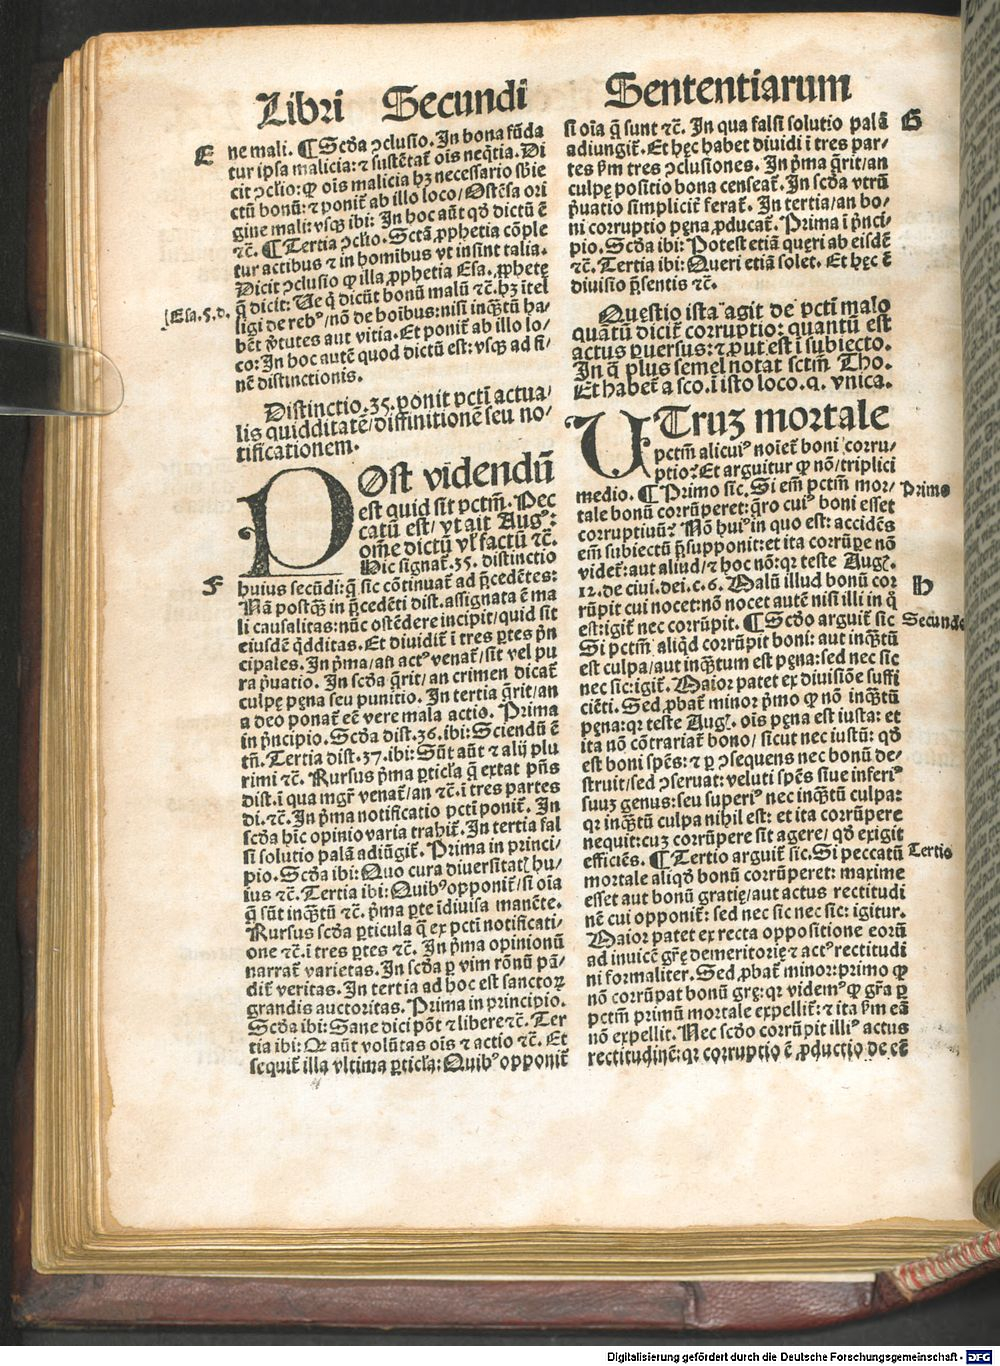 Libri Secundi Sententiarum
E
ne mali. ¶ Scđa ɔclusio. In bona fūda
tur ipsa malicia: ⁊ sustētat̄ ois neq̄tia. Di
cit ɔclio: ꝙ ois malicia hꝫ necessario sb̄ie
ctū bonū: ⁊ ponit̄ ab illo loco/Ostēsa ori
gine mali: vsqꝫ ibi: In hoc aūt qđ dictū ē
⁊c̄. ¶ Tertia ɔclio. Sctā ꝓphetia cōple
tur actibus ⁊ in homibus vt insint talia.
Dicit ɔclusio ꝙ illa ꝓphetia Esa. ꝓphetę
q̄ dicit: Ue q̄ dicūt bonū malū ⁊c̄. hꝫ ītel
ligi de rebꝰ/nō de hoibus: nisi inqꝫtū ha-
bēt p̄tutes aut vitia. Et ponit̄ ab illo lo/
co: In hoc autē quod dictū est: vsqꝫ ad fi/
nē distinctionis.
Esa.5.d.
Distinctio.35. ponit pctī actua/
lis quidditatē/diffinitionē seu no/
tificationem.
POst videndū
est quid sit pctm̄. Pec
catū est/vt ait Augꝰ:
om̄e dictū vl̓ factū ⁊c̄.
Hic signat̄.35. distinctio
F
huius secūdi: q̄ sic cōtinuat̄ ad p̄cedētes:
Nā postqꝫ in p̄cedēti dist. assignata ē ma
li causalitas: nūc ostēdere incipit/quid sit
eiusdē qđditas. Et diuidit̄ ī tres ꝑtes p̄n
cipales. In p̄ma/an actꝰ venat̄/sit vel pu
ra p̄uatio. In scđa q̄rit/an crimen dicat̄
culpę pęna seu punitio. In tertia q̄rit/an
a deo ponat̄ eē vere mala actio. Prima
in p̄ncipio. Scđa dist.36. ibi: Sciendū ē
tn̄. Tertia dist.37. ibi: Sūt aūt ⁊ alij plu
rimi ⁊c̄. Rursus p̄ma ꝑticl̓a q̄ extat p̄ns
dist. ī qua mgr̄ venat̄/an ⁊c̄. ī tres partes
di. ⁊c̄. In p̄ma notificatio pctī ponit̄. In
scđa hīc opinio varia trahit̄. In tertia fal
si solutio palā adiūgit̄. Prima in princi/
pio. Scđa ibi: Quo cura diuersitatꝭ hu/
ius ⁊c̄. Tertia ibi: Quibꝰ opponit̄/si oīa
q̄ sūt inqꝫtū ⁊c̄. p̄ma ꝑte īdiuisa manēte.
Rursus scđa ꝑticula q̄ ex pctī notificati/
one ⁊c̄. ī tres ꝑtes ⁊c̄. In p̄ma opinionū
narrat̄ varietas. In scđa ꝑ vim rōnū pā/
dit̄ veritas. In tertia ad hoc est sanctoꝝ
grandis auctoritas. Prima in principio.
Scđa ibi: Sane dici pōt ⁊ libere ⁊c̄. Ter
tia ibi: Qꝛ aūt volūtas ois ⁊ actio ⁊c̄. Et
sequit̄ illa vltima ꝑticl̓a: Quibꝰ opponit̄
si oīa q̄ sunt ⁊c̄. In qua falsi solutio palā
G
adiungit̄. Et hęc habet diuidi ī tres par-
tes ẜm tres ɔclusiones. In p̄ma q̄rit/an
culpę positio bona censeat̄. In scđa vtrū
p̄uatio simplicit̄ ferat̄. In tertia/an bo/
ni corruptio pęna ꝓducat̄. Prima ī p̄nci-
pio. Scđa ibi: Potest etiā queri ab eisdē
⁊c̄. Tertia ibi: Queri etiā solet. Et hęc ē
diuisio p̄sentis ⁊c̄.
Questio ista agit de pctī malo
quātū dicit̄ corruptio: quantū est
actus ꝑuersus: ⁊ ꝓut est ī subiecto.
In q̄ plus semel notat sctm̄ Tho.
Et habet̄ a sco. ī isto loco. q. vnica.
UTruꝫ mortale
pctm̄ alicuiꝰ noiet̄ boni corru-
ptio? Et arguitur ꝙ nō/triplici
medio. ¶ Primo sic. Si em̄ pctm̄ mor/
Primo
tale bonū corrūperet: q̄ro cuiꝰ boni esset
corruptiuū? Nō huiꝰ in quo est: accidēs
em̄ subiectū p̄supponit: et ita corrūpe nō
videt̄: aut aliud/⁊ hoc nō: qꝛ teste Augꝭ.
12. de ciui. dei. c. 6. Malū illud bonū cor
H
rūpit cui nocet: nō nocet autē nisi illi in q̊
est: igit̄ nec corrūpit. ¶ Scđo arguit̄ sic
Secundo
Si pctm̄ aliqđ corrūpit boni: aut inqꝫtū
est culpa/aut inqꝫtum est pęna: sed nec sic
nec sic: igit̄. Maior patet ex diuisiōe suffi
ciēti. Sed ꝓbat̄ minor p̄mo ꝙ nō inqꝫtū
pęna: qꝛ teste Augꝭ. ois pęna est iusta: et
ita nō cōtrariat̄ bono/sicut nec iustū: qđ
est boni spēs: ⁊ ꝑ ɔsequens nec bonū de-
struit/sed ɔseruat: veluti spēs siue inferiꝰ
suuꝫ genus: seu superiꝰ nec inqꝫtū culpa:
qꝛ inqꝫtū culpa nihil est: et ita corrūpere
nequit: cuꝫ corrūpere sit agere/qđ exigit
efficiēs. ¶ Tertio arguit̄ sic. Si peccatū
Tertio
mortale aliqđ bonū corrūperet: maxime
esset aut bonū gratię/aut actus rectitudi
nē cui opponit̄: sed nec sic nec sic: igitur.
Maior patet ex recta oppositione eorū
ad inuicē gr̄ę demeritorię ⁊ actꝰ rectitudi
ni formaliter. Sed ꝓbat̄ minor: primo ꝙ
nō corrūpat bonū grę: qꝛ videmꝰ ꝙ gr̄a ꝑ
pctm̄ primū mortale expellit̄: ⁊ ita ẜm eā
nō expellit. Nec scđo corrūpit illiꝰ actus
rectitudinē: qꝛ corruptio ē ꝓductio de eē
Digitalisierung gefördert durch die Deutsche Forschungsgemeinschaft - DFG